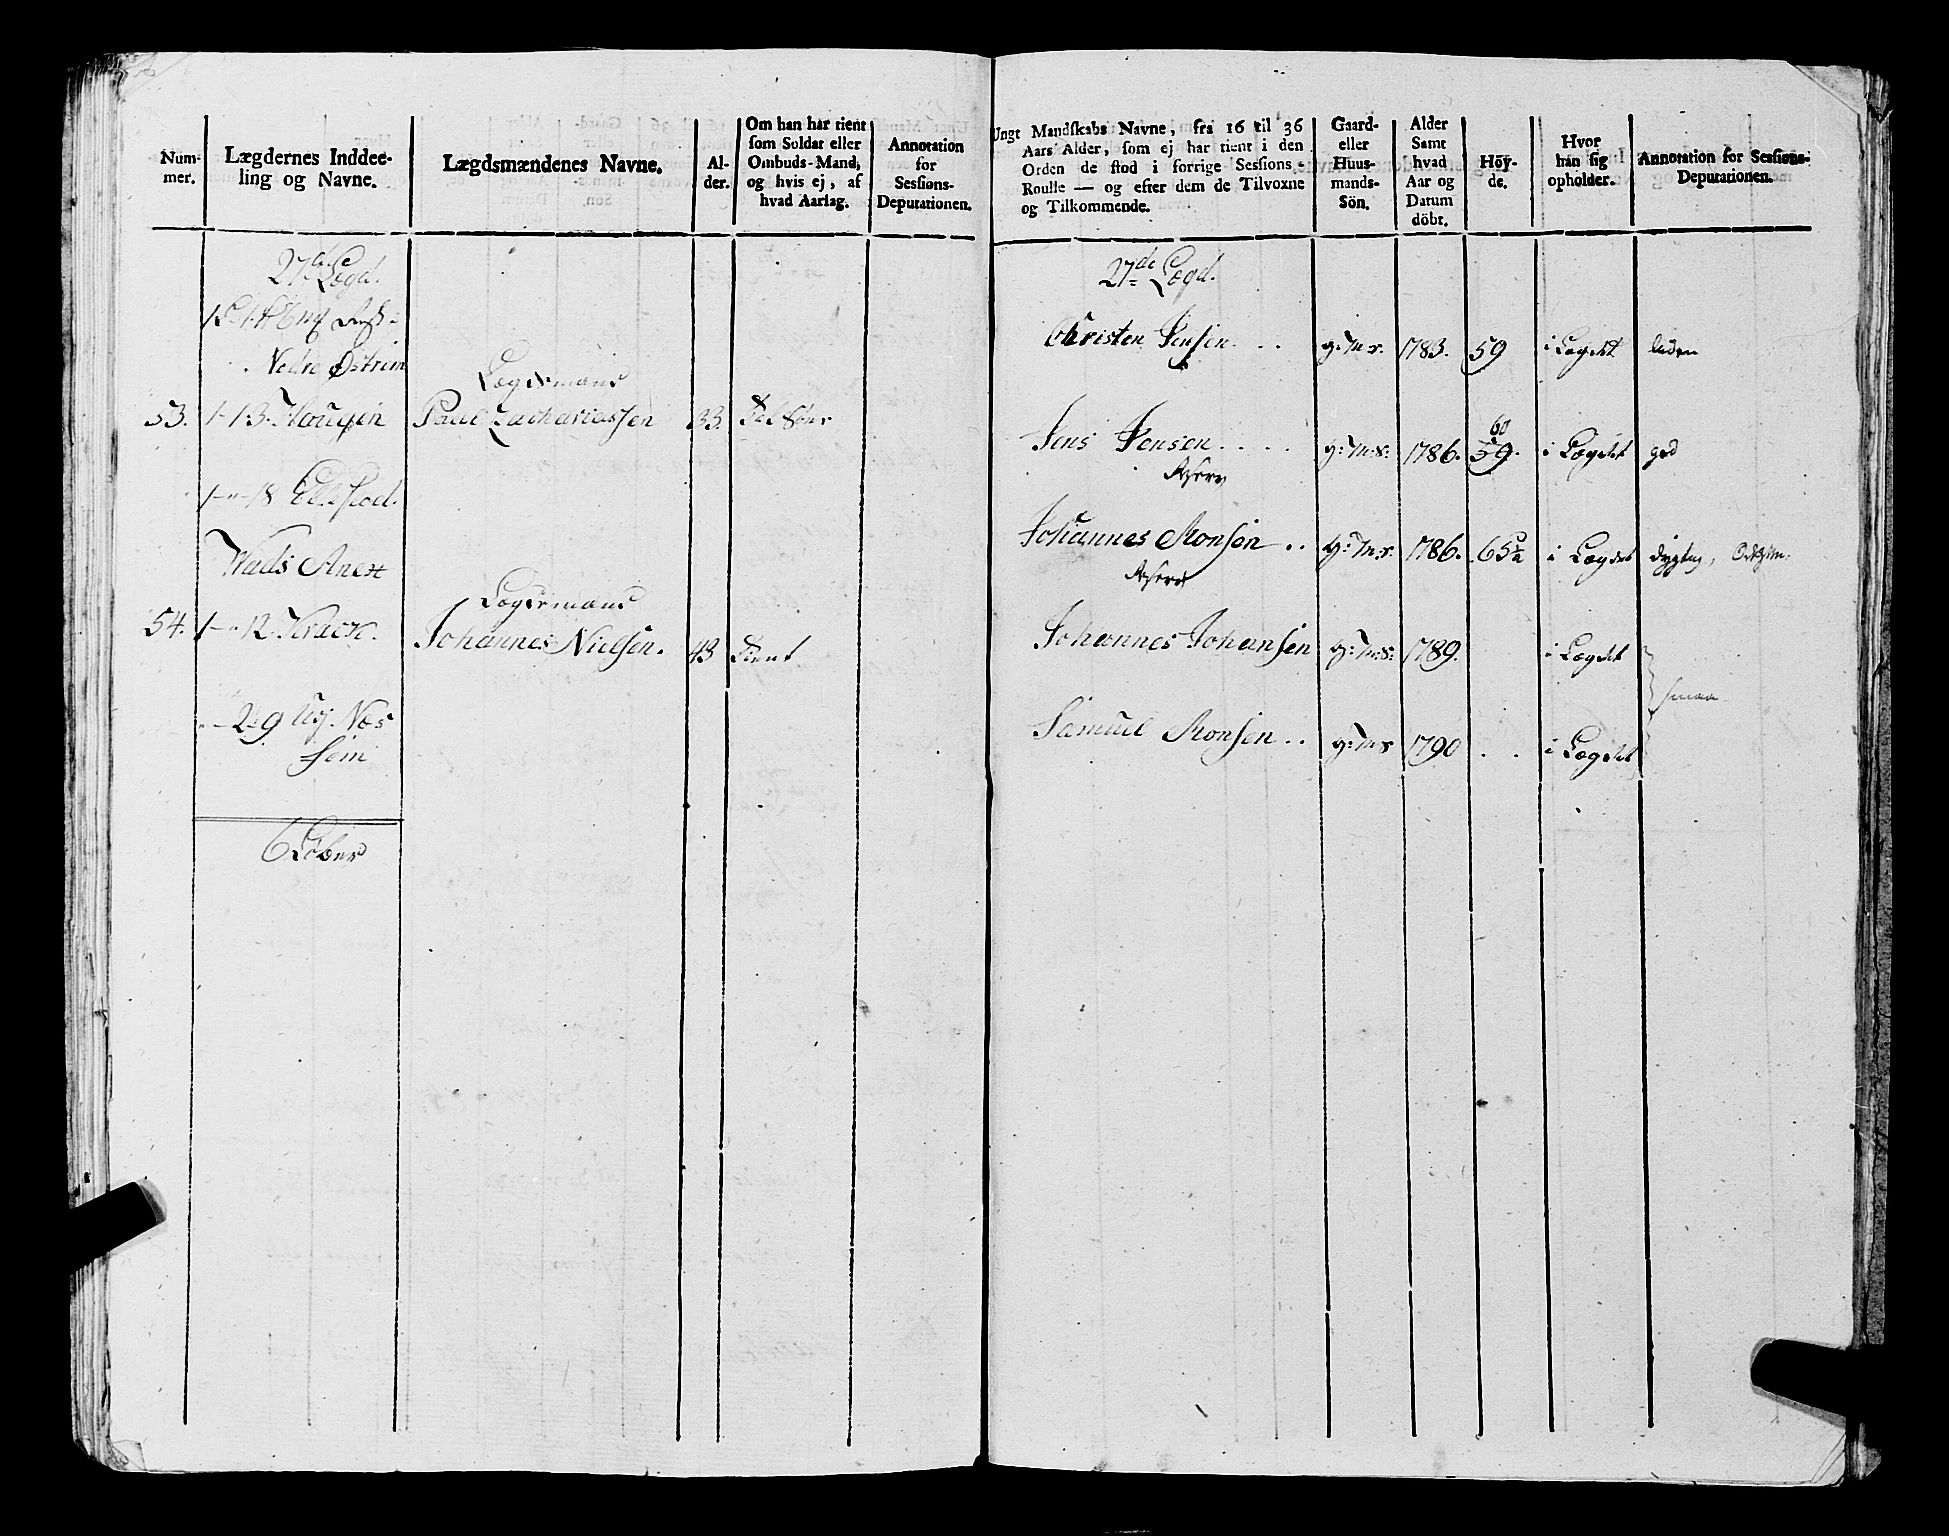 Num-
mer.
Lægdernes Inddee-
ling og Navne.
Lægdsmændenes Navne.
Al-
der.
Om han har tient
som Soldat eller
Ombuds-Mand,
og hvis ej, af
hvad Aarsag.
Annotation
for
Sessions-
Deputationen.
27de Lægd.
Nedre Østrim
Lægdsmand
53. 1-1-3 Hougen Paul Zachariassen 33.
1-"-18
Wads Anex
Lægdsmand
54. 1-"-12 Krack. Johannes Nielsen. 43 Tient
"-2-9 Næs
Sem
6 Løber
Ungt Mandskabs Navne, fra 16 til 36
Aars Alder, som ej har tient i den
Orden de stod i forrige Sessions-
Roulle — og efter dem de Tilvoxne
og Tilkommende.
Gaard-
eller
Huus-
mands-
Sön.
Alder
Samt
hvad
Aar og
Datum
döbt.
Höy-
de.
Hvor
han sig
opholder.
Annotation for Sessions-
Deputationen.
27de Lægd.
Christen Jensen . . g: m: s. 1783. 59 i Lægdet liden
60
Jens Jensen . . . . g: m: s: 1786. 59. i Lægdet god
Johannes Monsen . . g: m: s. 1786. 65½ i Lægdet dygtig,
Johannes Johansen g: m: s: 1789. i Lægdet
smaa
Samuel Monsen . . g: m: s 1790 . . i Lægdet